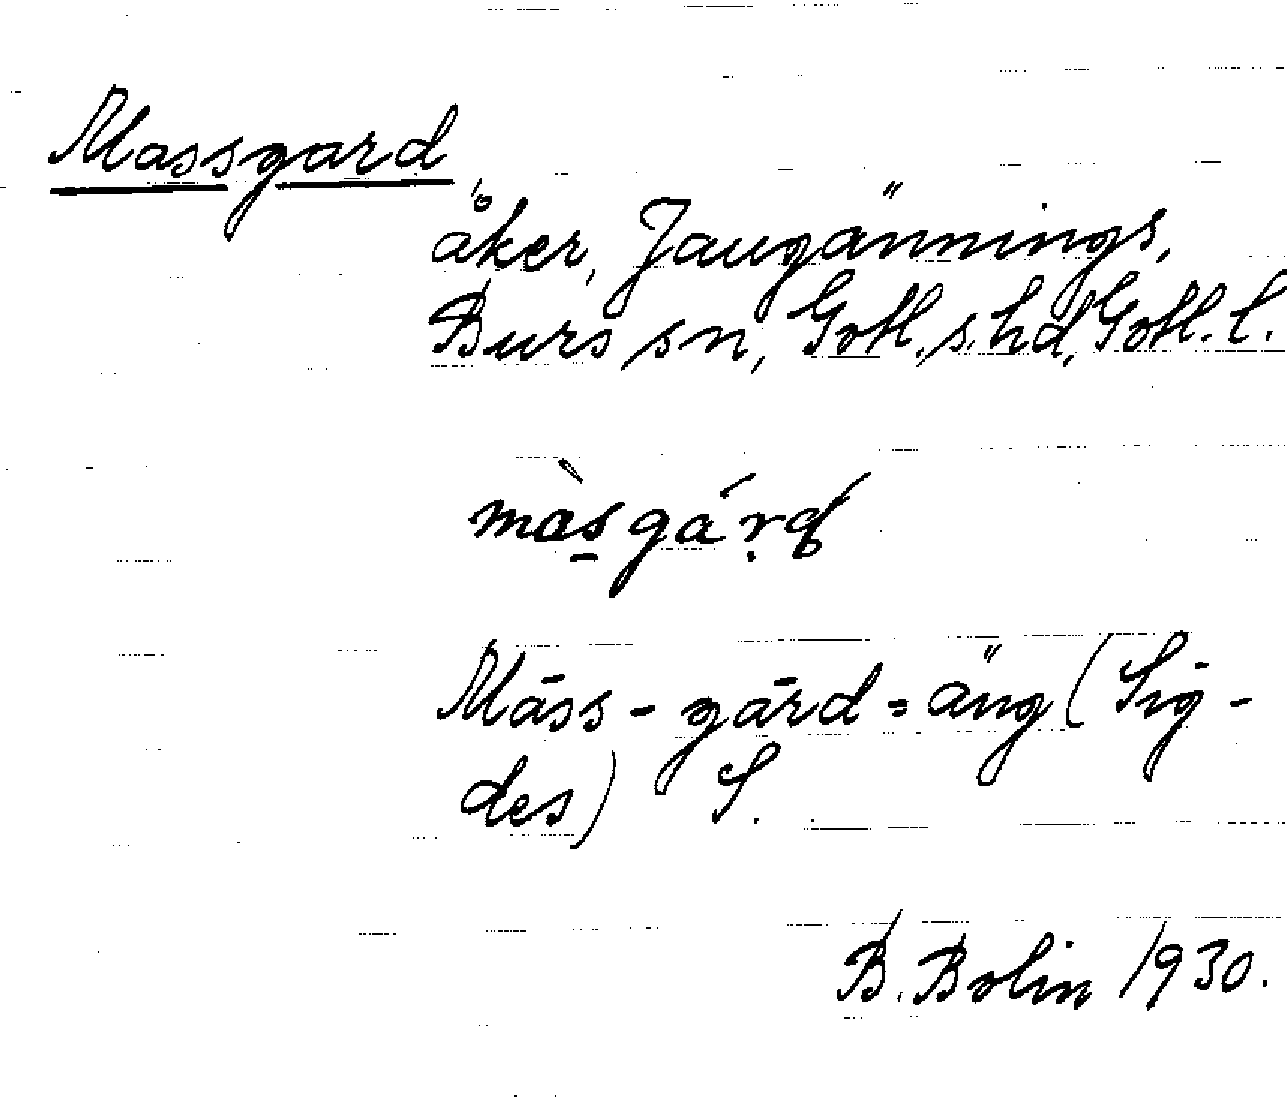 Massgard,
åker, Jaugännings,
Burs sn, Gotl. s. hd, Gotl. l.
màs̲gáṛd
Māss-gārd = äng (Sig-
des) S.
B. Bolin 1930.